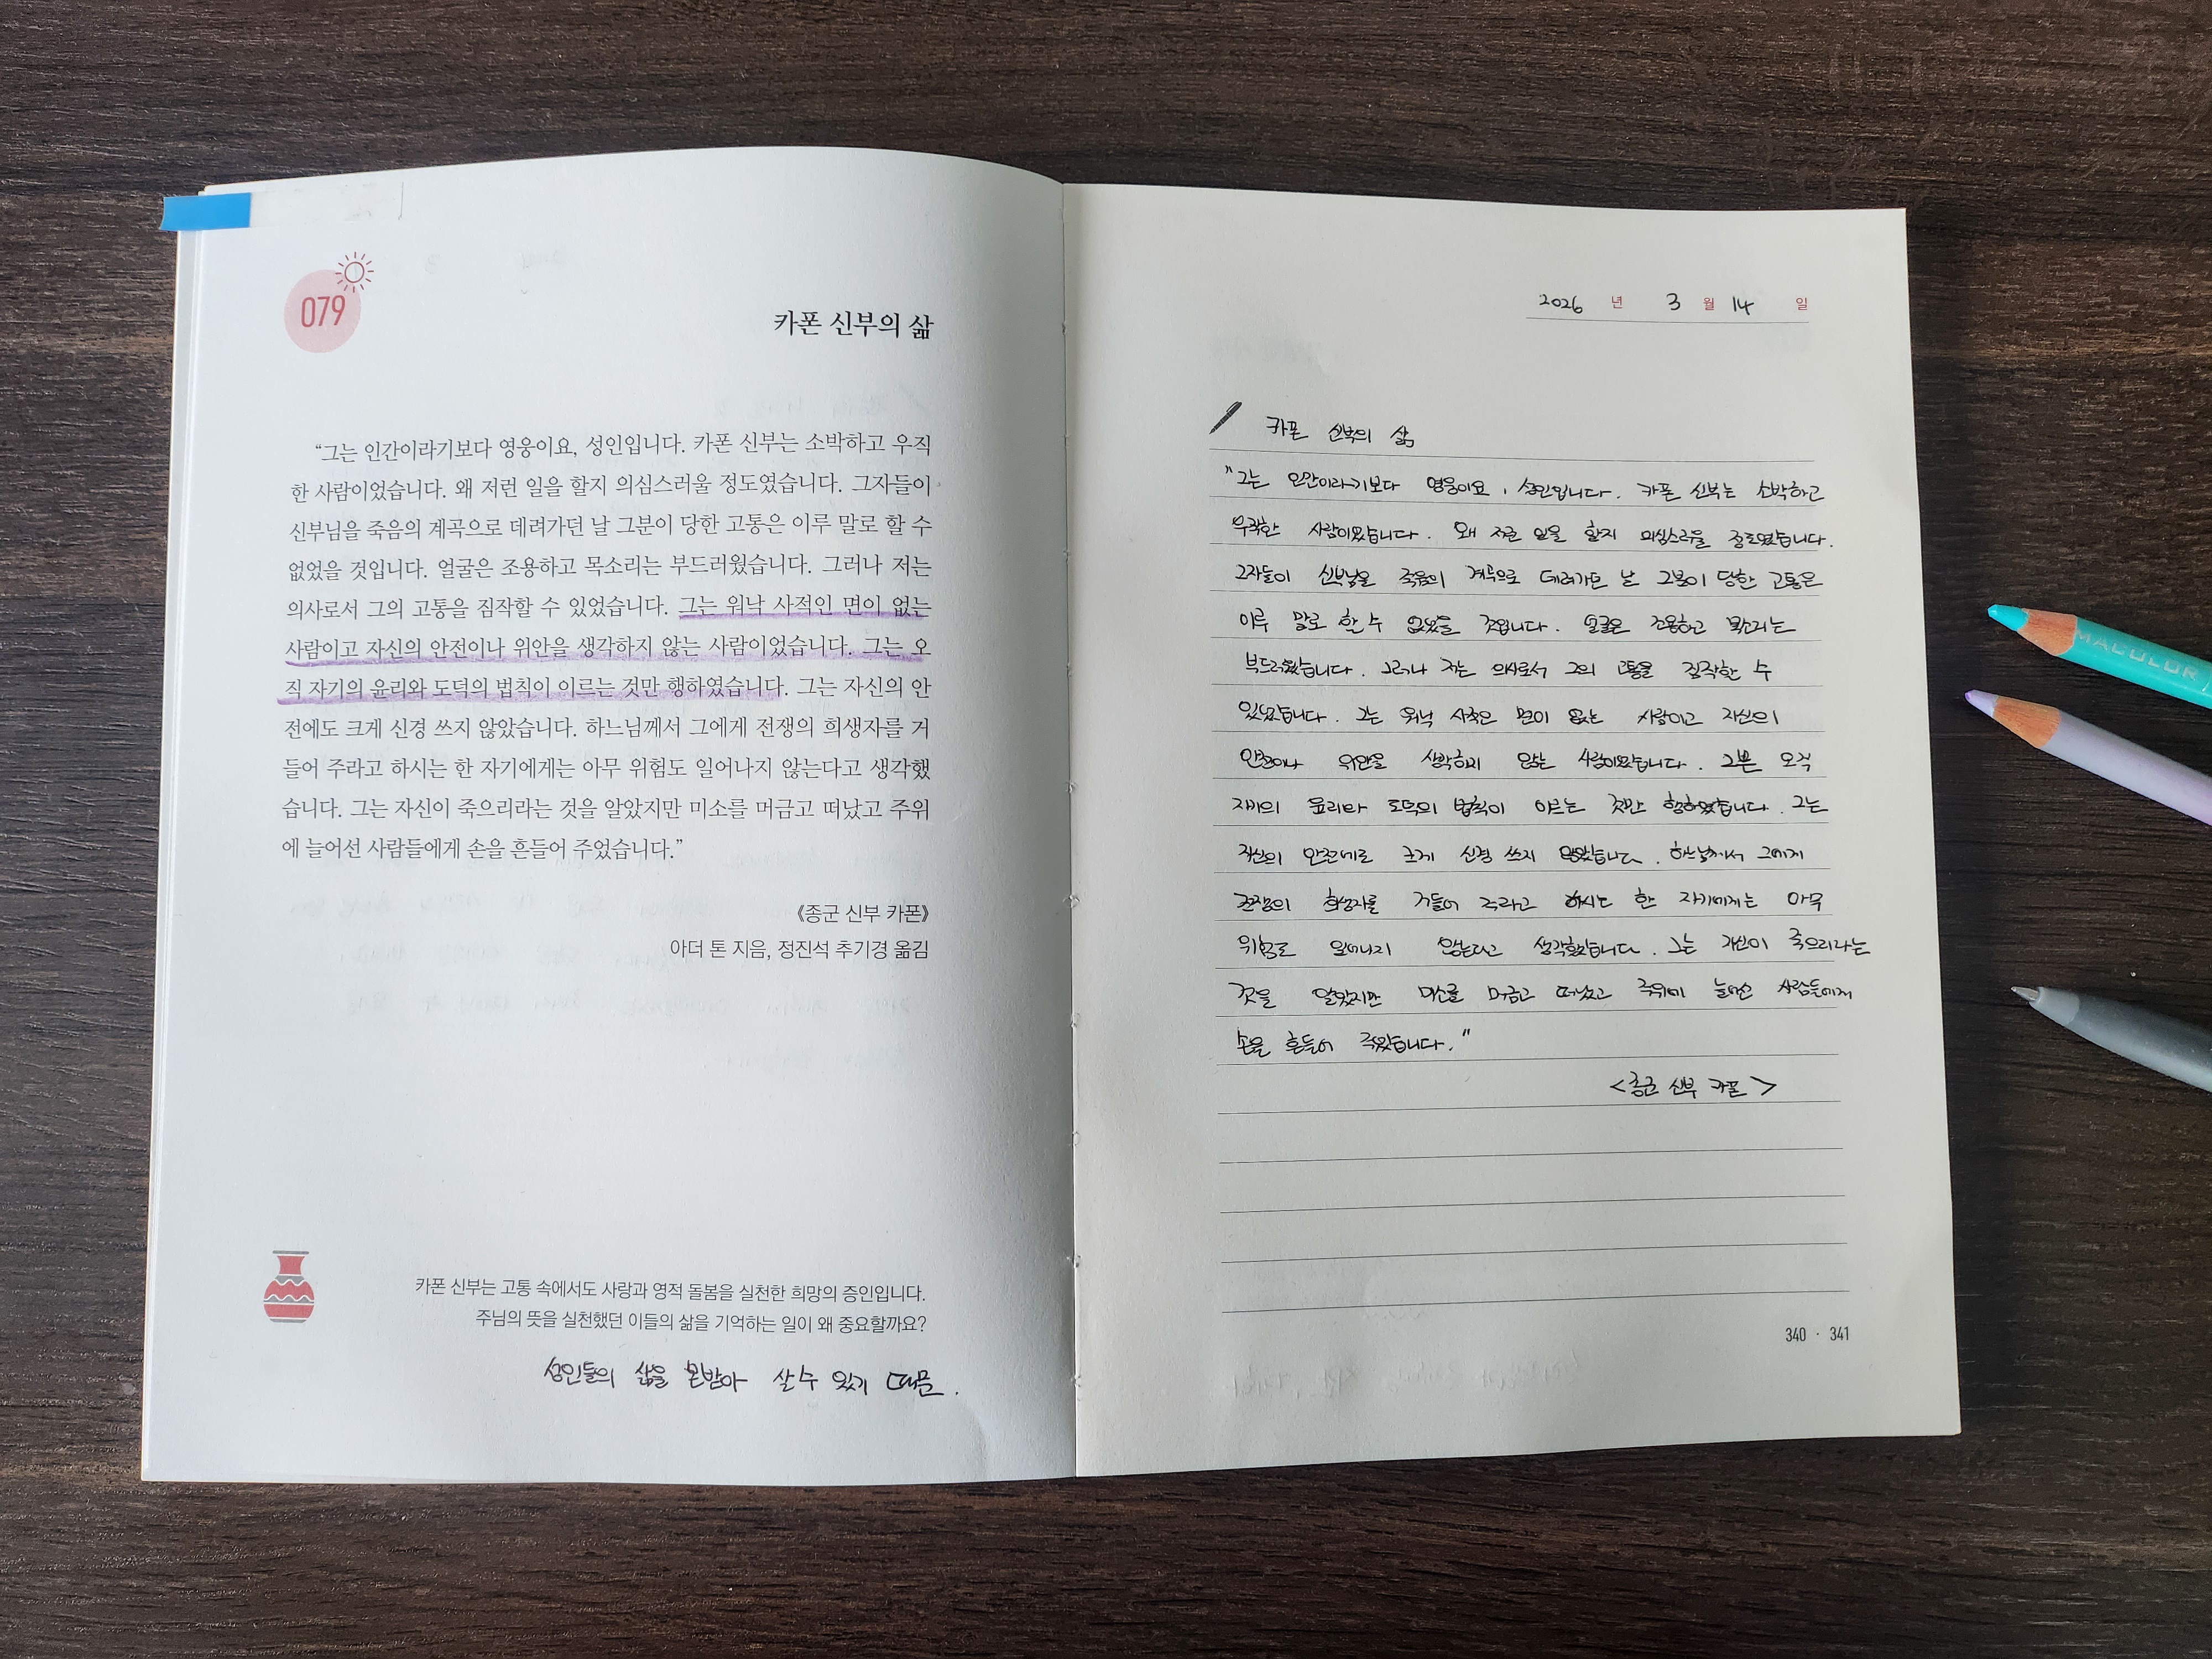 079
카폰 신부의 삶
“그는 인간이라기보다 영웅이요, 성인입니다. 카폰 신부는 소박하고 우직
한 사람이었습니다. 왜 저런 일을 할지 의심스러울 정도였습니다. 그자들이
신부님을 죽음의 계곡으로 데려가던 날 그분이 당한 고통은 이루 말로 할 수
없었을 것입니다. 얼굴은 조용하고 목소리는 부드러웠습니다. 그러나 저는
의사로서 그의 고통을 짐작할 수 있었습니다. 그는 워낙 사적인 면이 없는
사람이고 자신의 안전이나 위안을 생각하지 않는 사람이었습니다. 그는 오
직 자기의 윤리와 도덕의 법칙이 이르는 것만 행하였습니다. 그는 자신의 안
전에도 크게 신경 쓰지 않았습니다. 하느님께서 그에게 전쟁의 희생자를 거
들어 주라고 하시는 한 자기에게는 아무 위험도 일어나지 않는다고 생각했
습니다. 그는 자신이 죽으리라는 것을 알았지만 미소를 머금고 떠났고 주위
에 늘어선 사람들에게 손을 흔들어 주었습니다.”
《종군 신부 카폰》
아더 톤 지음, 정진석 추기경 옮김
카폰 신부는 고통 속에서도 사랑과 영적 돌봄을 실천한 희망의 증인입니다.
주님의 뜻을 실천했던 이들의 삶을 기억하는 일이 왜 중요할까요?
성인들의 삶을 본받아 살 수 있기 때문.
2026 년 3 월 14 일
카폰 신부의 삶
"그는 인간이라기보다 영웅이요, 성인입니다. 카폰 신부는 소박하고
우직한 사람이었습니다. 왜 저런 일을 할지 의심스러울 정도였습니다.
그자들이 신부님을 죽음의 계곡으로 데려가던 날 그분이 당한 고통은
이루 말로 할 수 없었을 것입니다. 얼굴은 조용하고 목소리는
부드러웠습니다. 그러나 저는 의사로서 그의 고통을 짐작할 수
있었습니다. 그는 워낙 사적은 면이 없는 사람이고 자신의
안전이나 위안을 생각하지 않는 사람이었습니다. 그는 오직
자기의 윤리와 도덕의 법칙이 이르는 것만 행하였습니다. 그는
자신의 안전에도 크게 신경 쓰지 않았습니다. 하느님께서 그에게
전쟁의 희생자를 거들어 주라고 하시는 한 자기에게는 아무
위험도 일어나지 않는다고 생각했습니다. 그는 자신이 죽으리라는
것을 알았지만 미소를 머금고 떠났고 주위에 늘어선 사람들에게
손을 흔들어 주었습니다."
<종군 신부 카폰>
340 · 341
MACOLOR